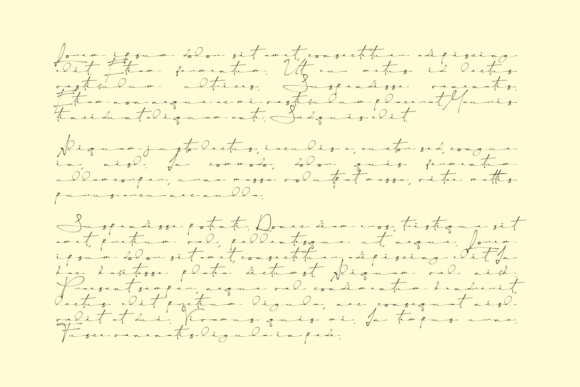 Lorem ipsum dolor sit amet, consectetuer adipiscing
elit. Etiam fermentum. Ut eu metus id lectus
vestibulum ultrices. Suspendisse venenatis.
Etiam non neque ac mi vestibulum placerat. Mauris
tincidunt aliquam erat. Sed quis elit
Aliquam justo lectus, iaculis a, auctor sed, congue
in, nisl. In commodo, dolor quis fermentum
ullamcorper, urna massa volutpat massa, vitae mattis
purus arcu nec nulla.
Suspendisse potenti. Donec diam eros, tristique sit
amet, pretium vel, pellentesque ut neque. Lorem
ipsum dolor sit amet, consectetuer adipiscing elit. In
hac habitasse platea dictumst. Aliquam vel nisl.
Praesent semper, neque vel condimentum hendrerit,
lectus elit pretium ligula, nec consequat nisl
velit at dui. Vivamus quis mi. In tempus urna.
Fusce venenatis ligula in pede.